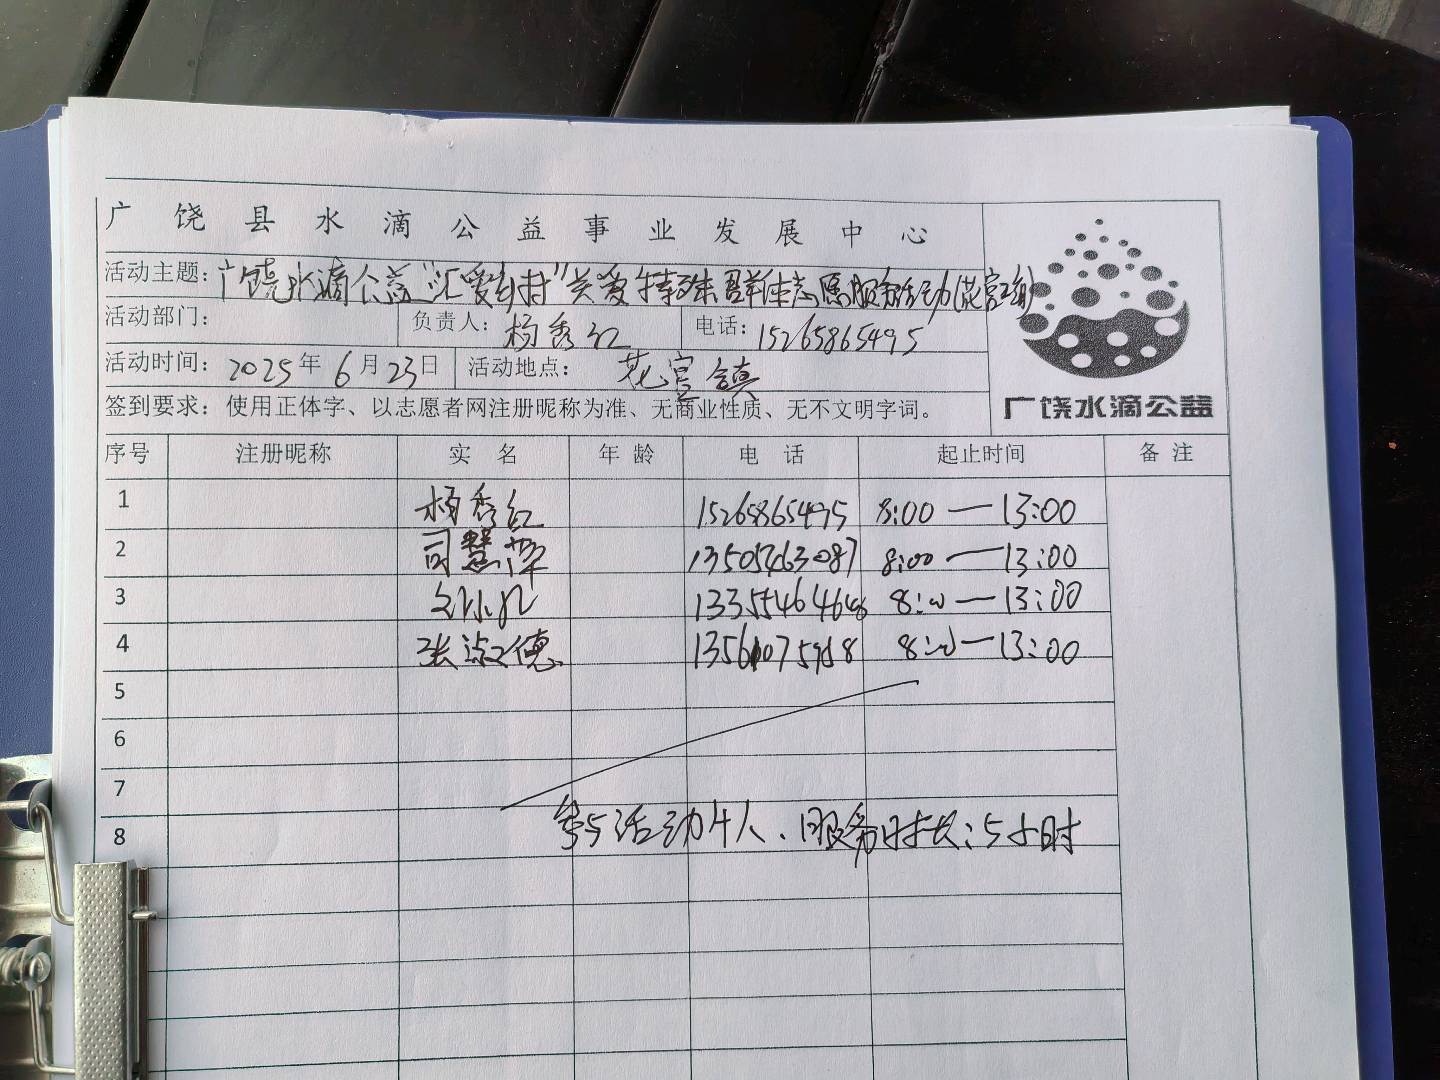 广饶县水滴公益事业发展中心
活动主题：广饶水滴公益“汇爱乡村”关爱特殊群体志愿服务活动(花官镇)
活动部门： 负责人：杨秀红 电话：15265865495
活动时间：2025年6月23日 活动地点：花官镇
签到要求：使用正体字、以志愿者网注册昵称为准、无商业性质、无不文明字词。
广饶水滴公益
序号 注册昵称 实名 年龄 电话 起止时间 备注
1 杨秀红 15265865495 8:00—13:00
2 司慧萍 13505463087 8:00—13:00
3 13355464646 8:00—13:00
4 张淑德 8:00—13:00
5
6
7
参与活动4人、服务时长：5小时
8